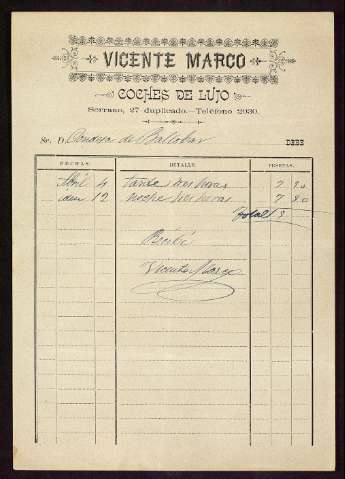 VICENTE MARCO
COCHES DE LUJO
Serrano, 27 duplicado.—Teléfono 2030.
Sr. D. Condesa de Ballobar DEBE
FECHAS DETALLE PESETAS.
Abril 4 tarde tres horas 7 50
idem 12 noche tres horas 7 50
total
Recibí
Vicente Marco